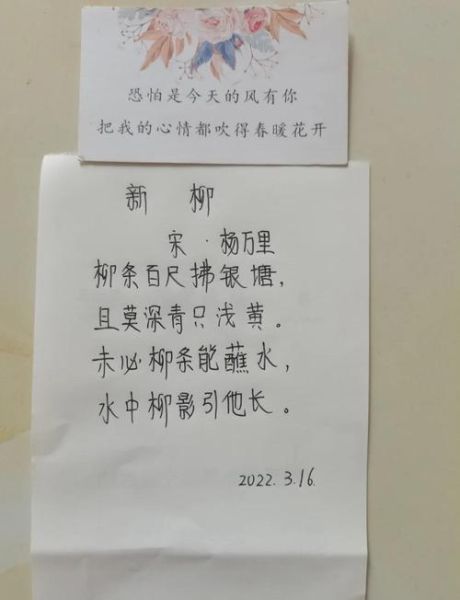 恐怕是今天的风有你
把我的心情都吹得春暖花开
新 柳
宋 · 杨万里
柳条百尺拂银塘，
且莫深青只浅黄。
未必柳条能蘸水，
水中柳影引他长。
2022. 3.16.